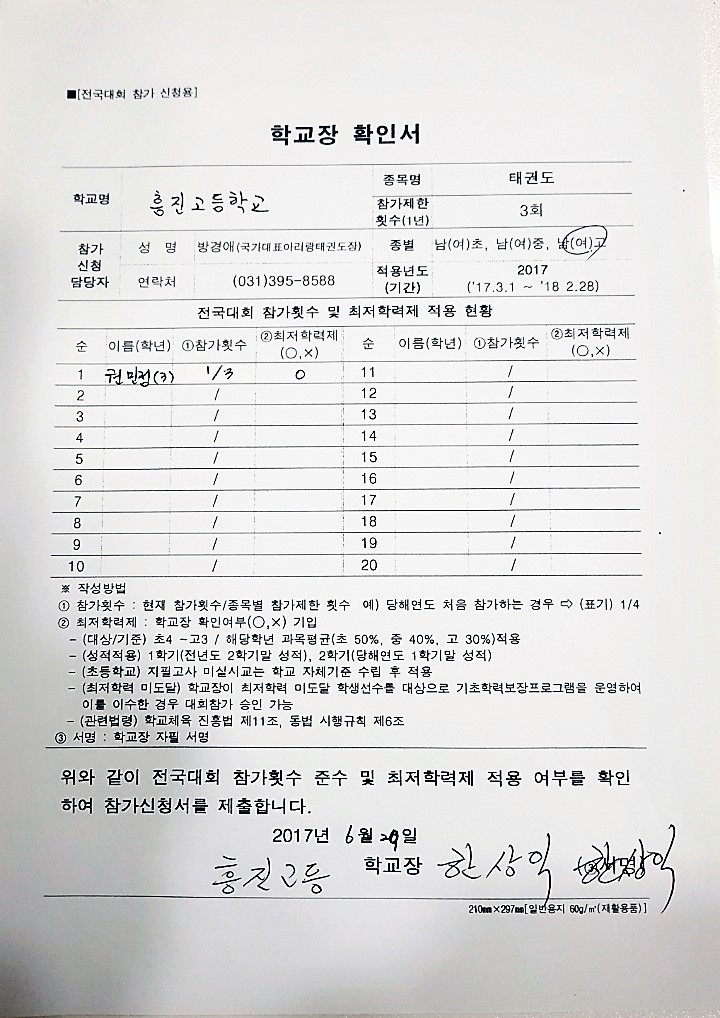 ■[전국대회 참가 신청용]
학교장 확인서
학교명 흥진고등학교 종목명 태권도
참가제한 횟수(1년) 3회
참가 신청 담당자 성 명 방경애(국가대표아리랑태권도장) 종별 남(여)초, 남(여)중, 남(여)고
연락처 (031)395-8588 적용년도 (기간) 2017 ('17.3.1 ~ '18 2.28)
전국대회 참가횟수 및 최저학력제 적용 현황
순 이름(학년) ①참가횟수 ②최저학력제 (○,×) 순 이름(학년) ①참가횟수 ②최저학력제 (○,×)
1 권민정(3) 1/3 O 11 /
2 / 12 /
3 / 13 /
4 / 14 /
5 / 15 /
6 / 16 /
7 / 17 /
8 / 18 /
9 / 19 /
10 / 20 /
※ 작성방법
① 참가횟수 : 현재 참가횟수/종목별 참가제한 횟수 예) 당해연도 처음 참가하는 경우 ⇨ (표기) 1/4
② 최저학력제 : 학교장 확인여부(○,×) 기입
- (대상/기준) 초4 ~고3 / 해당학년 과목평균(초 50%, 중 40%, 고 30%)적용
- (성적적용) 1학기(전년도 2학기말 성적), 2학기(당해연도 1학기말 성적)
- (초등학교) 지필고사 미실시교는 학교 자체기준 수립 후 적용
- (최저학력 미도달) 학교장이 최저학력 미도달 학생선수를 대상으로 기초학력보장프로그램을 운영하여
이를 이수한 경우 대회참가 승인 가능
- (관련법령) 학교체육 진흥법 제11조, 동법 시행규칙 제6조
③ 서명 : 학교장 자필 서명
위와 같이 전국대회 참가횟수 준수 및 최저학력제 적용 여부를 확인
하여 참가신청서를 제출합니다.
2017년 6월 29일
흥진고등 학교장 한상익 한상익
210㎜×297㎜[일반용지 60g/㎡(재활용품)]